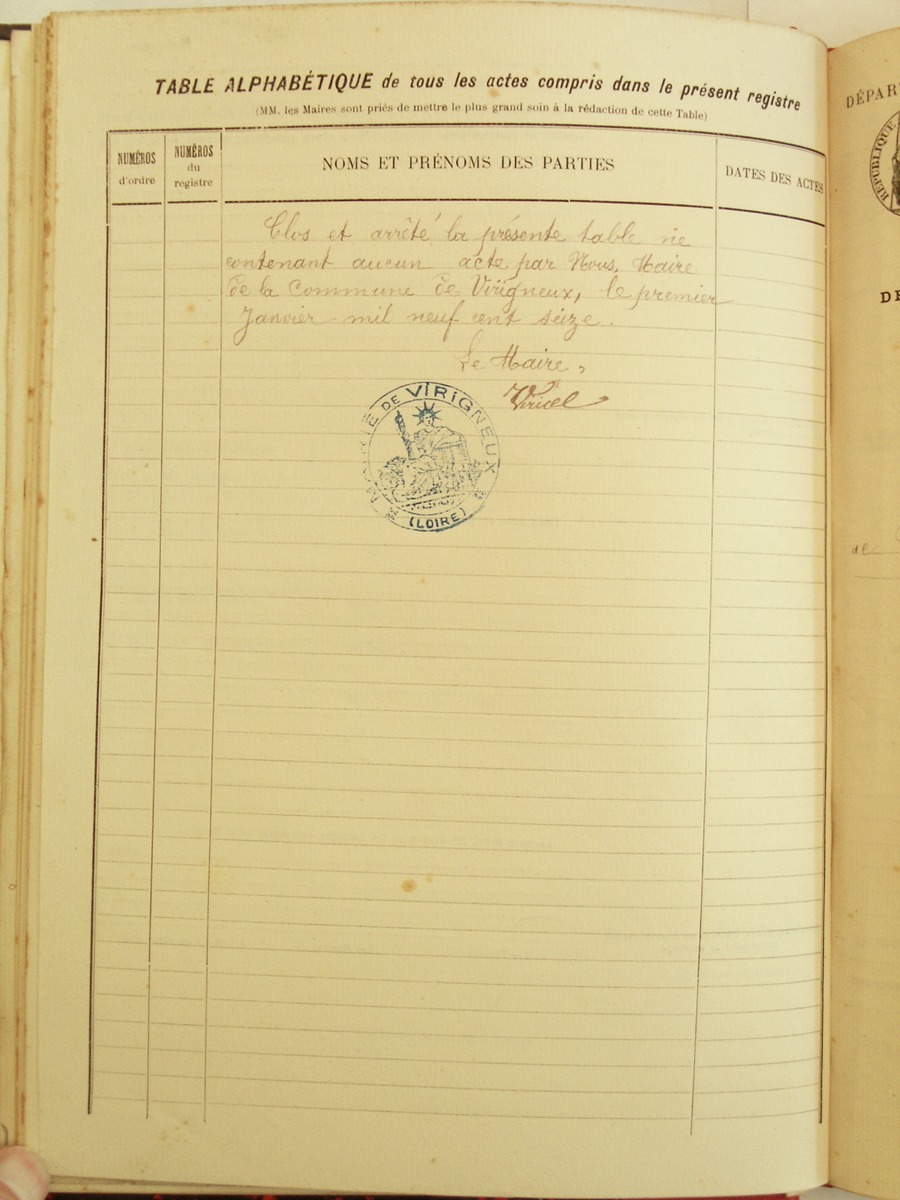 TABLE ALPHABÉTIQUE de tous les actes compris dans le présent registre
(MM. les Maires sont priés de mettre le plus grand soin à la rédaction de cette Table)
NUMÉROS d'ordre
NUMÉROS du registre
NOMS ET PRÉNOMS DES PARTIES
DATES DES ACTES
Clos et arrêté la présente table ne
contenant aucun acte par Nous, Maire
de la Commune de Virigneux, le premier
Janvier mil neuf cent seize.
Le Maire,
Viricel
MAIRIE DE VIRIGNEUX
(LOIRE)
DÉPART
RÉPUBLIQUE
DE
de